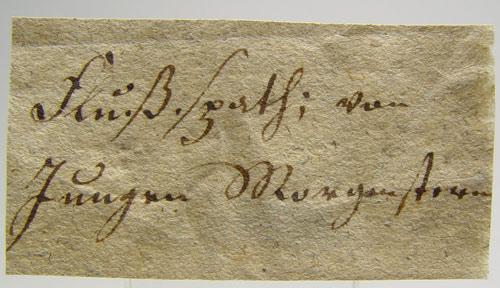 Flußspath; von
Jungen Morgenstern